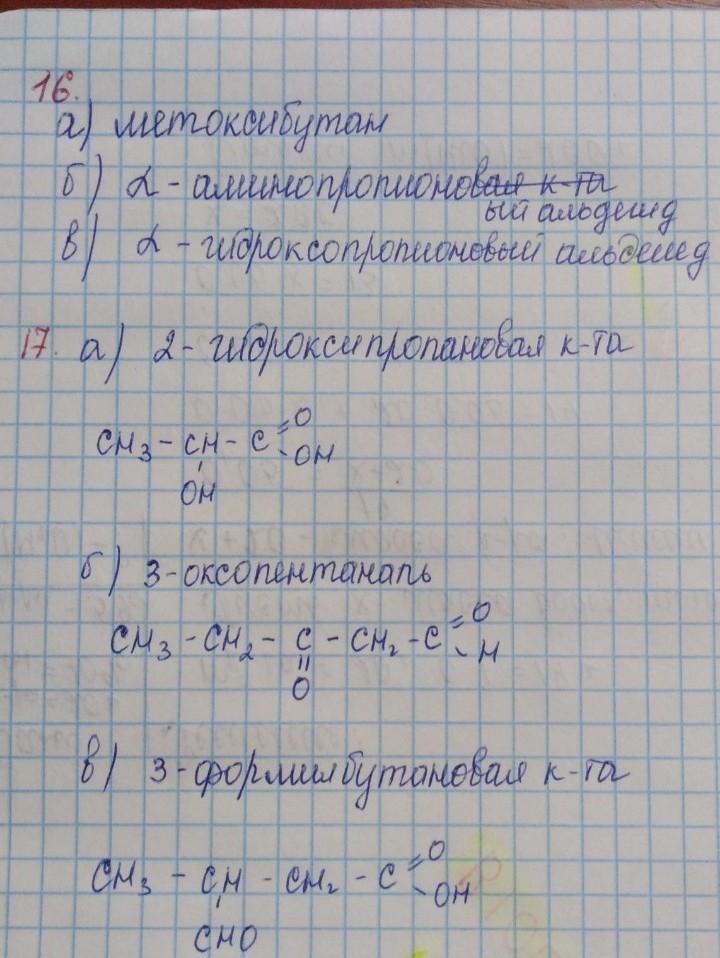 16.
а) метоксибутан
б) α - аминопропионовая к-та
ый альдегид
в) α - гидроксопропионовый альдегид
17. а) 2 - гидроксипропановая к-та
O
CH3 - CH - C =
- OH
OH
б) 3-оксопентаналь
O
CH3 - CH2 - C - CH2 - C =
- H
O
в) 3-формилбутановая к-та
O
CH3 - CH - CH2 - C =
- OH
CHO